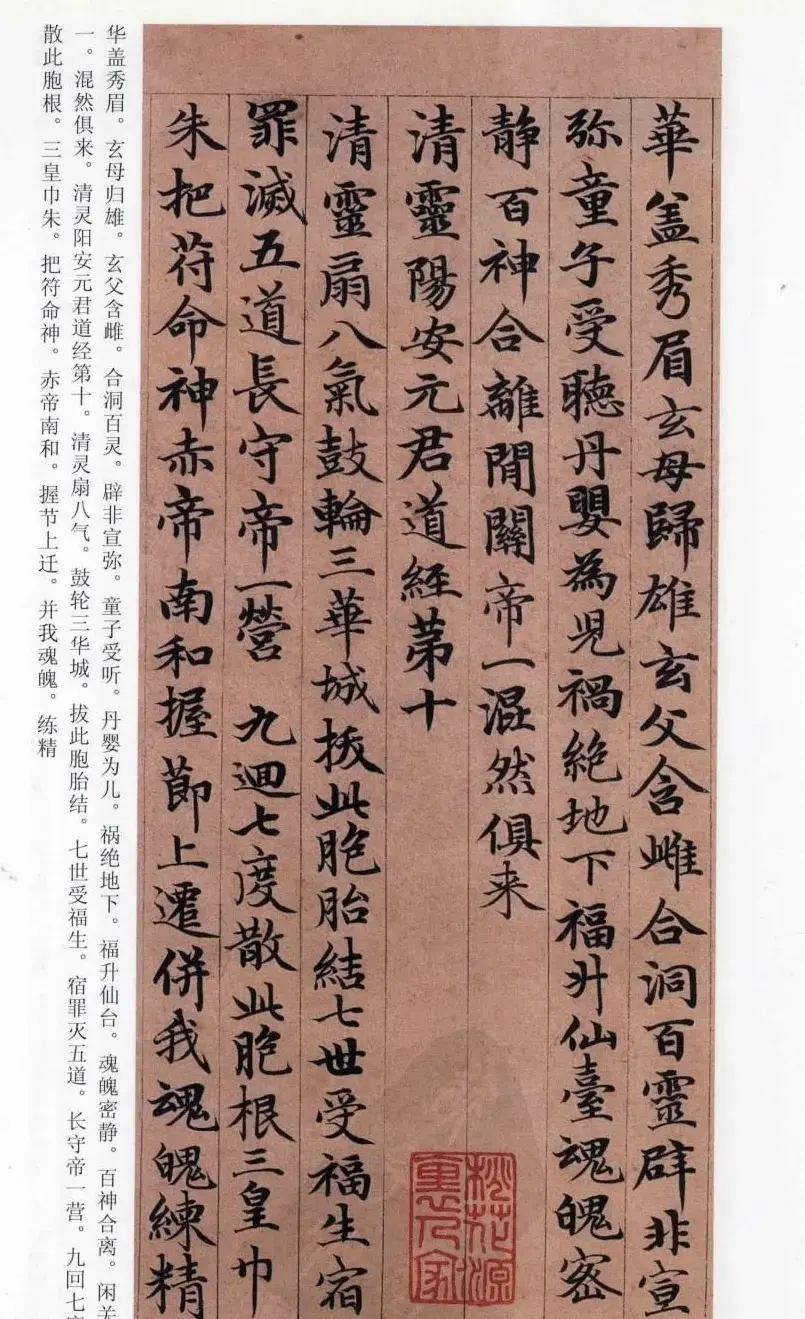 華盖秀眉玄母歸雄玄父含雌合洞百靈辟非宣
弥童子受聽丹嬰為兒禍絕地下福升仙臺魂魄密
静百神合離閒關帝一混然俱来
清靈陽安元君道經第十
清靈扇八氣鼓輪三華城拔此胞胎結七世受福生宿
罪滅五道長守帝一營 九迴七度散此胞根三皇巾
朱把苻命神赤帝南和握節上遷併我魂魄練精
桃花源
里人家
华盖秀眉。玄母归雄。玄父含雌。合洞百灵。辟非宣弥。童子受听。丹婴为儿。祸绝地下。福升仙台。魂魄密静。百神合离。闲关
一。混然俱来。清灵阳安元君道经第十。清灵扇八气。鼓轮三华城。拔此胞胎结。七世受福生。宿罪灭五道。长守帝一营。九回七度
散此胞根。三皇巾朱。把符命神。赤帝南和。握节上迁。并我魂魄。练精